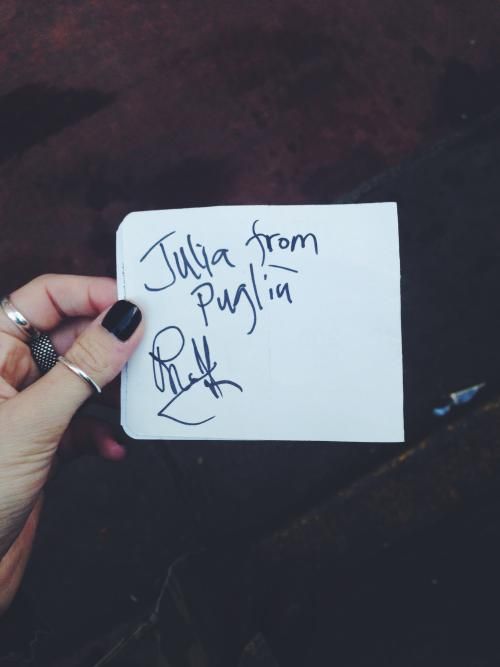 Julia from
Puglia